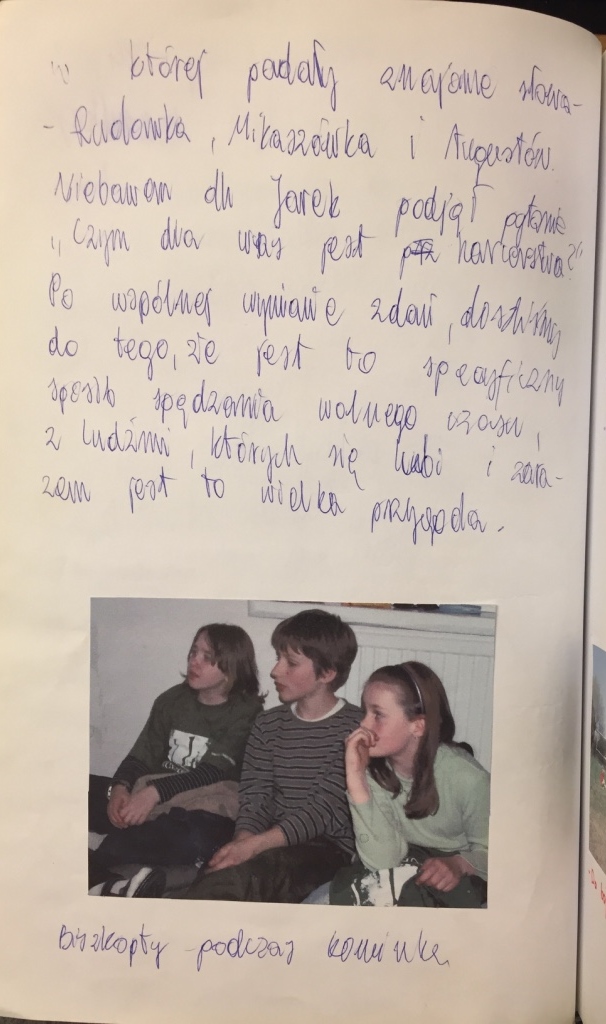 w której padały znajome słowa-
- Rudawka, Mikaszówka i Augustów.
Niebawem dh Jarek podjął pytanie
„Czym dla was jest harcerstwo?"
Po wspólnej wymianie zdań, doszliśmy
do tego, że jest to specyficzny
sposób spędzania wolnego czasu,
z ludźmi, których się lubi i zara-
zem jest to wielka przygoda.
Biszkopty podczas kominka.